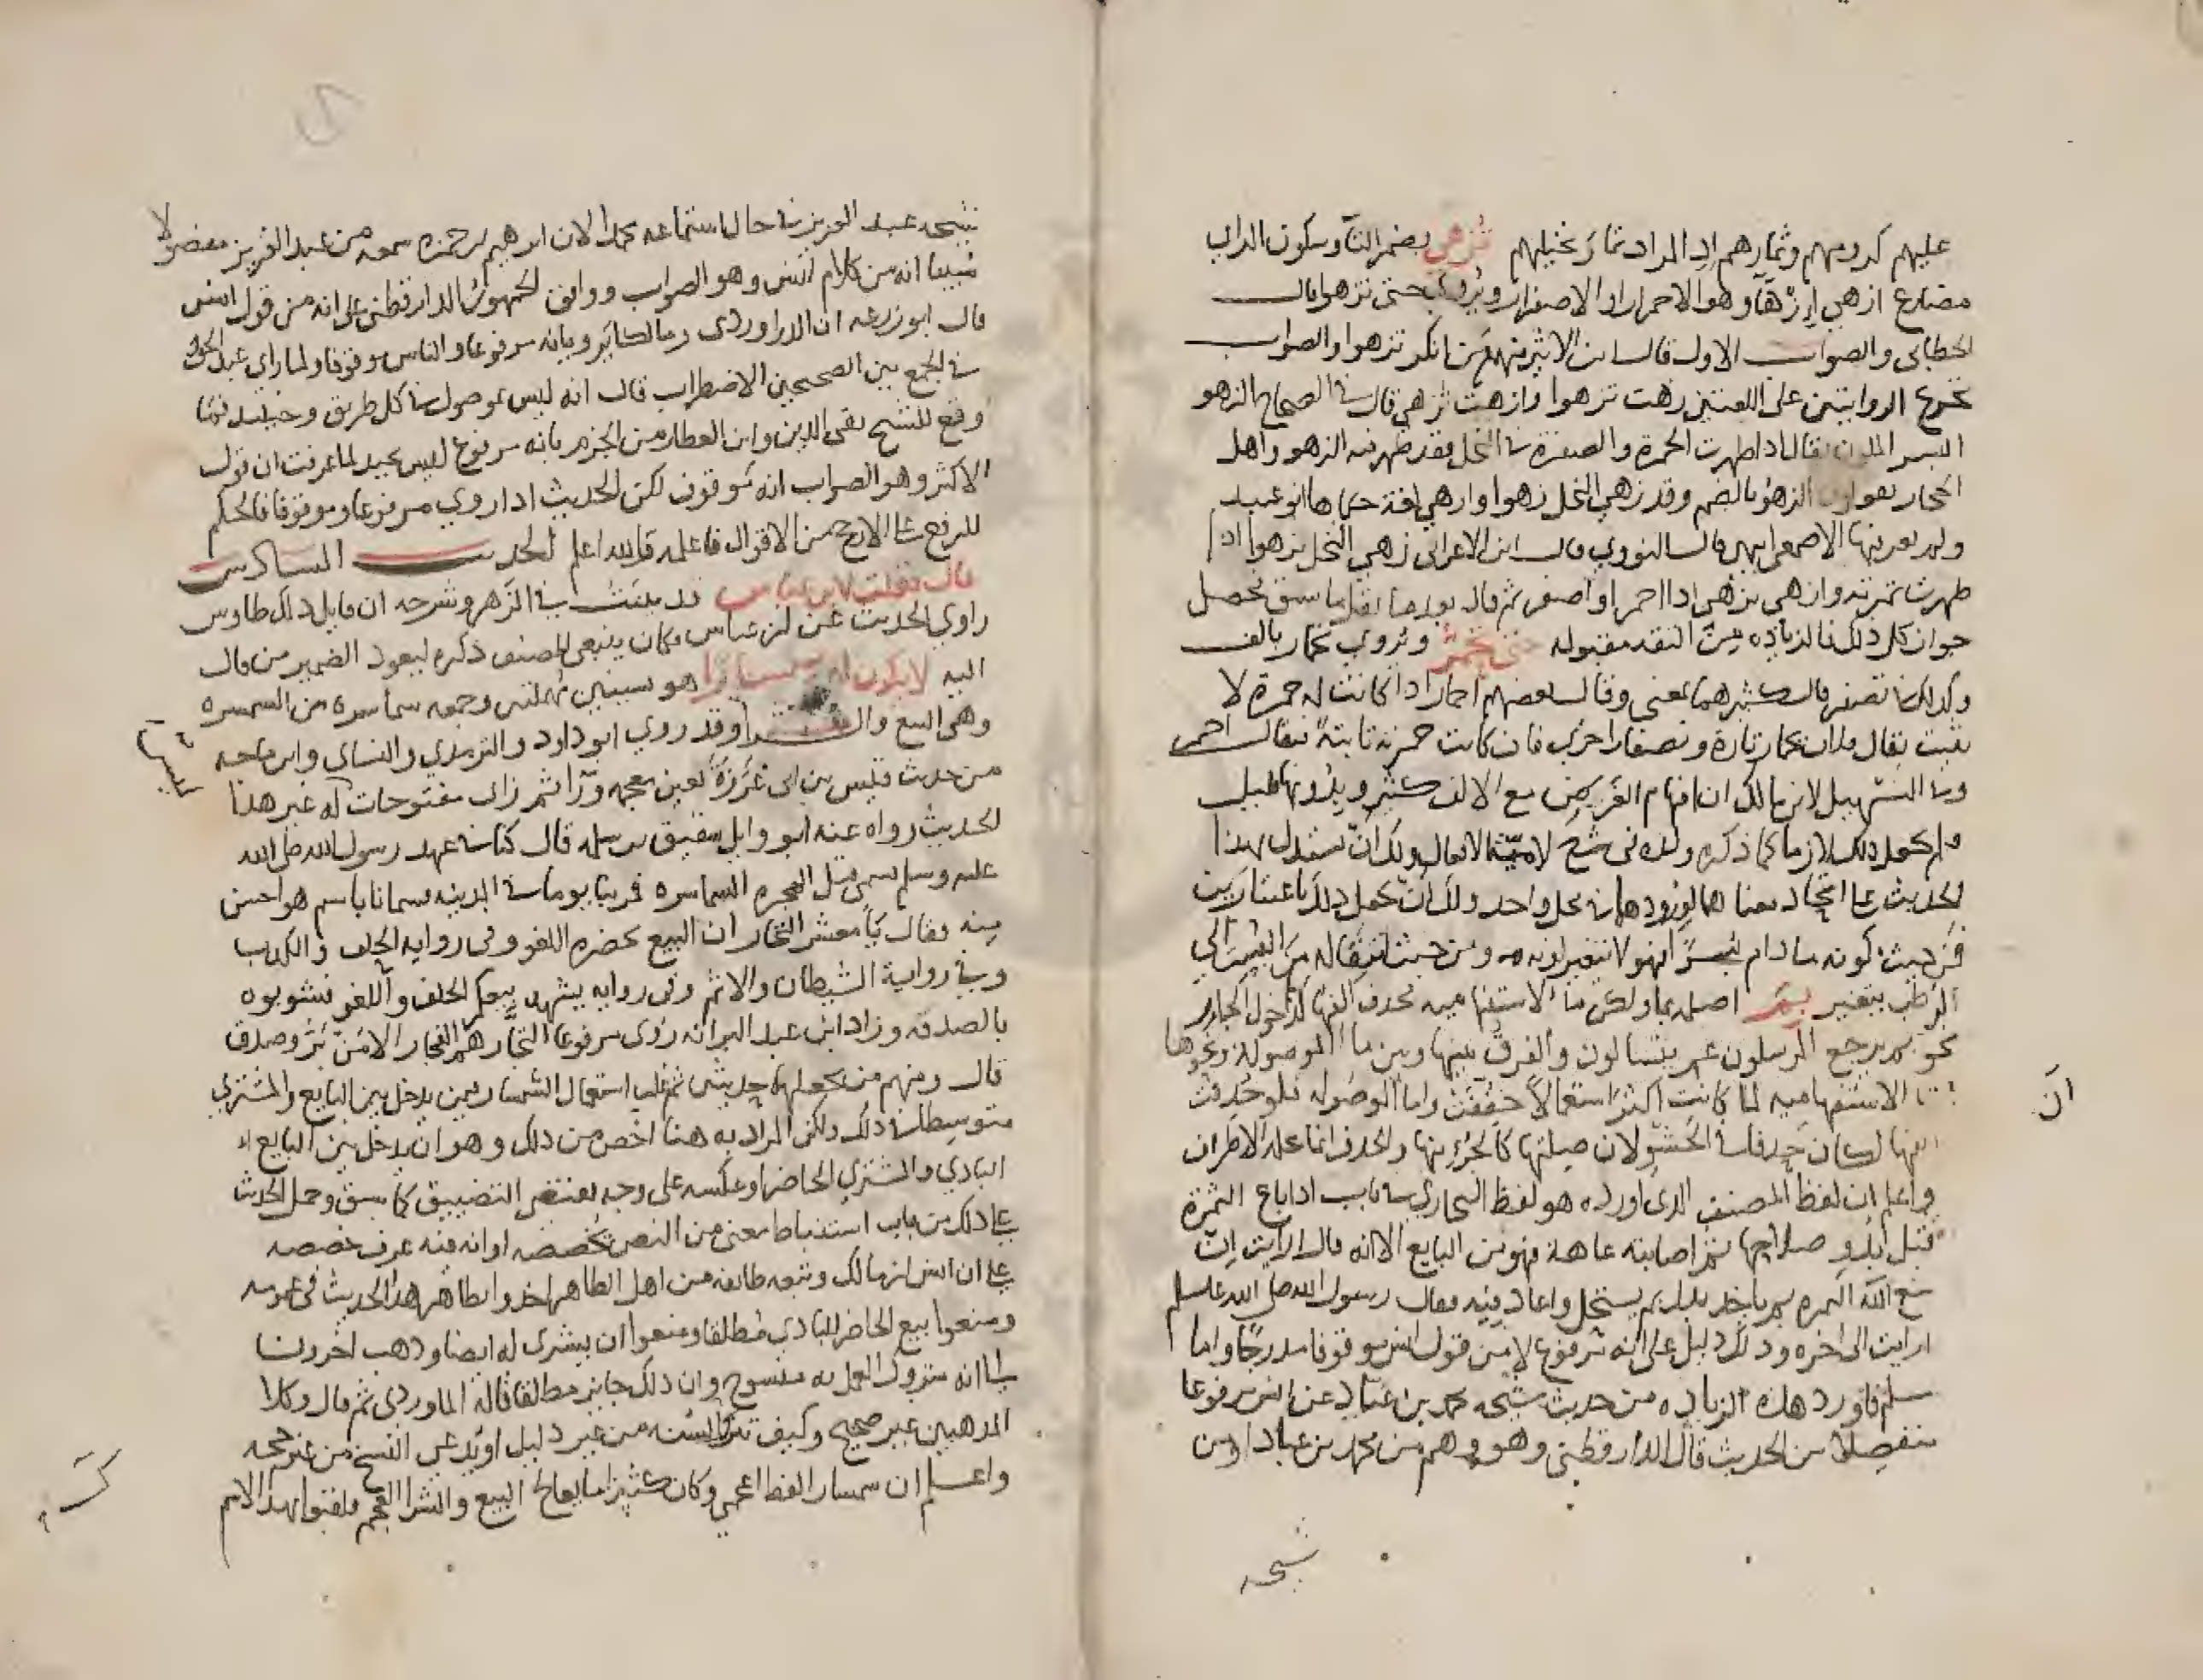 عليهم كرومهم وثمارهم اذ المراد ثمار نخيلهم تزهي بضم التاء وسكون الزاي
مضارع ازهي ازهاء وهو الاحمرار او الاصفرار ويروي حتى تزهوا قال
الخطابي والصواب الاول قال ابن الاثير منهم من انكر تزهوا والصواب
تخرج الروايتين على اللغتين زهت تزهوا وازهت تزهي قال في الصحاح الزهو
البسر الملون يقال اذا ظهرت الحمرة والصفرة في النخل فقد ظهر فيه الزهو واهل
الحجاز يقولون الزهو بالضم وقد زهي النخل زهوا وازهي لغة حكاها ابو عبيد
ولم يعرفها الاصمعي قال النووي قال ابن الاعرابي زهي النخل يزهوا اذا
ظهرت ثمرته وازهي يزهي اذا احمر او اصفر ثم قال بعد ما نقل ما سبق فحصل
جواز كل ذلك فالزيادة من الثقة مقبولة حتى تحمر ويروي تحمار بالف
وكذلك في تصفر قال كثير هما بمعنى وقال بعضهم احمار اذا كانت له حمرة لا
تثبت يقال فلان يحمار تارة ويصفار اخرى فان كانت حمرته ثابتة فيقال احمر
وفي التسهيل لابن مالك ان افهام العرض مع الالف كثير وبدونها قليل
ولم يجعل ذلك لازما كما ذكره ولده في شرح لامية الافعال ولك ان تستدل بهذا
الحديث على اتحاد معناهما لورودهما في محل واحد ولك ان تجعل ذلك باعتبارين
فمن حيث كونه ما دام بسرا فهو لا يتغير لونه ومن حيث انتقاله من البسر الى
الرطب يتغير بم اصله بما ولكن ما الاستفهامية تحذف الفها لدخول الجار
نحو بم يرجع المرسلون عم يتسالون والفرق بينها وبين ما الموصولة ونحوها
ان الاستفهامية لما كانت اكثر استعمالا خففت واما الموصولة فلو حذفت
الفها لكان حذفا في الحشو لان صلتها كالجزء منها والحذف انما محله الاطراف
واعلم ان لفظ المصنف الذي اورده هو لفظ البخاري في باب اذا باع الثمرة
قبل بدو صلاحها ثم اصابته عاهة فهو من البايع الا انه قال ارايت ان
منع الله الثمرة بم ياخذ بدل بم يستحل واعاد فيه فقال رسول الله صلى الله عليه وسلم
ارايت الى اخره وذلك دليل على انه مرفوع لا من قول انس موقوفا مدرجا واما
مسلم فاورد هذه الزيادة من حديث شيخه محمد بن عباد عن انس مرفوعا
منفصلا من الحديث قال الدارقطني وهو وهم من محمد بن عباد او من
شيخه
ان
شيخه عبد العزيز في حال اسماعه محمدا لان ابرهيم بن حمزه سمعه من عبد العزيز مفصولا
مبينا انه من كلام انس وهو الصواب ووافق الجمهور الدارقطني على انه من قول انس
قال ابو زرعه ان الدراوردي ومالكا يرويانه مرفوعا والناس موقوفا ولما راي عبد الحق
في الجمع بين الصحيحين الاضطراب قال انه ليس بموصول في كل طريق وحينيذ فما
وقع للشيخ تقي الدين وابن العطار من الجزم بانه مرفوع ليس بجيد لما عرفت ان قول
الاكثر وهو الصواب انه موقوف لكن الحديث اذا روي مرفوعا وموقوفا فالحكم
للرفع على الارجح من الاقوال فاعلمه والله اعلم الحديث السادس
قال فقلت لابن عباس قد بينت في الزهر وشرحه ان قايل ذلك طاوس
راوي الحديث عن ابن عباس وكان ينبغي للمصنف ذكره ليعود الضمير من قال
اليه لا يكون له سمسارا هو بسينين مهملتين وجمعه سماسره من السمسره
وهي البيع والشرا وقد روي ابو داود والترمذي والنساي وابن ماجه
من حديث قيس بن ابي غرزة بغين معجمه وراء ثم زاي مفتوحات له غير هذا
الحديث رواه عنه ابو وايل شقيق بن سلمه قال كنا في عهد رسول الله صلى الله
عليه وسلم نسمى قبل الهجره السماسره فمر بنا يوما في المدينه فسمانا باسم هو احسن
منه فقال يا معشر التجار ان البيع يحضره اللغو وفي روايه الحلف والكذب
وفي رواية الشيطان والاثم وفي روايه يشهد بيعكم الحلف واللغو فشوبوه
بالصدقه وزاد ابن عبد البر انه روى مرفوعا التجار هم الفجار الا من بر وصدق
قال ومنهم من يجعلهما حديثين ثم غلب استعمال السمسار فيمن يدخل بين البايع والمشتري
متوسطا في ذلك ولكن المراد به هنا اخص من ذلك وهو ان يدخل بين البايع
البادي والمشتري الحاضر او عكسه على وجه يقتضي التضييق كما سبق وحمل الحديث
على ذلك من باب استنباط معنى من النص يخصصه او انه فيه عرف خصصه
على ان انس بن مالك وتبعه طايفه من اهل الظاهر اخذوا بظاهر هذا الحديث في عمومه
ومنعوا بيع الحاضر للبادي مطلقا ومنعوا ان يشترى له ايضا وذهب اخرون
الى انه متروك العمل به منسوخ وان ذلك جايز مطلقا قاله الماوردي ثم قال وكلا
المذهبين غير صحيح وكيف تترك السنه من غير دليل او يدعى النسخ من غير حجه
واعلم ان سمسار لفظ اعجمي وكان كثير ما يعالج البيع والشرا العجم فلقبوا بهذا الاسم